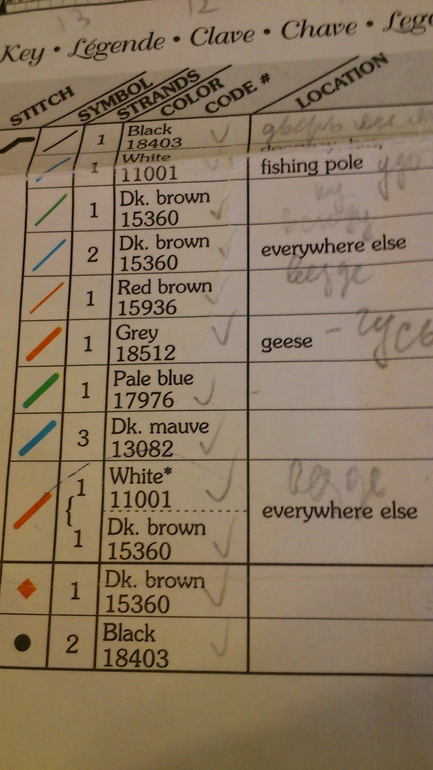 13 12
Key • Légende • Clave • Chave • Lege
STITCH SYMBOL STRANDS COLOR CODE # LOCATION
1 Black
18403
1 White
11001 fishing pole
1 Dk. brown
15360
2 Dk. brown
15360 everywhere else
везде
1 Red brown
15936
1 Grey
18512 geese - гусь
1 Pale blue
17976
3 Dk. mauve
13082
1 White*
11001 везде
everywhere else
1 Dk. brown
15360
1 Dk. brown
15360
2 Black
18403